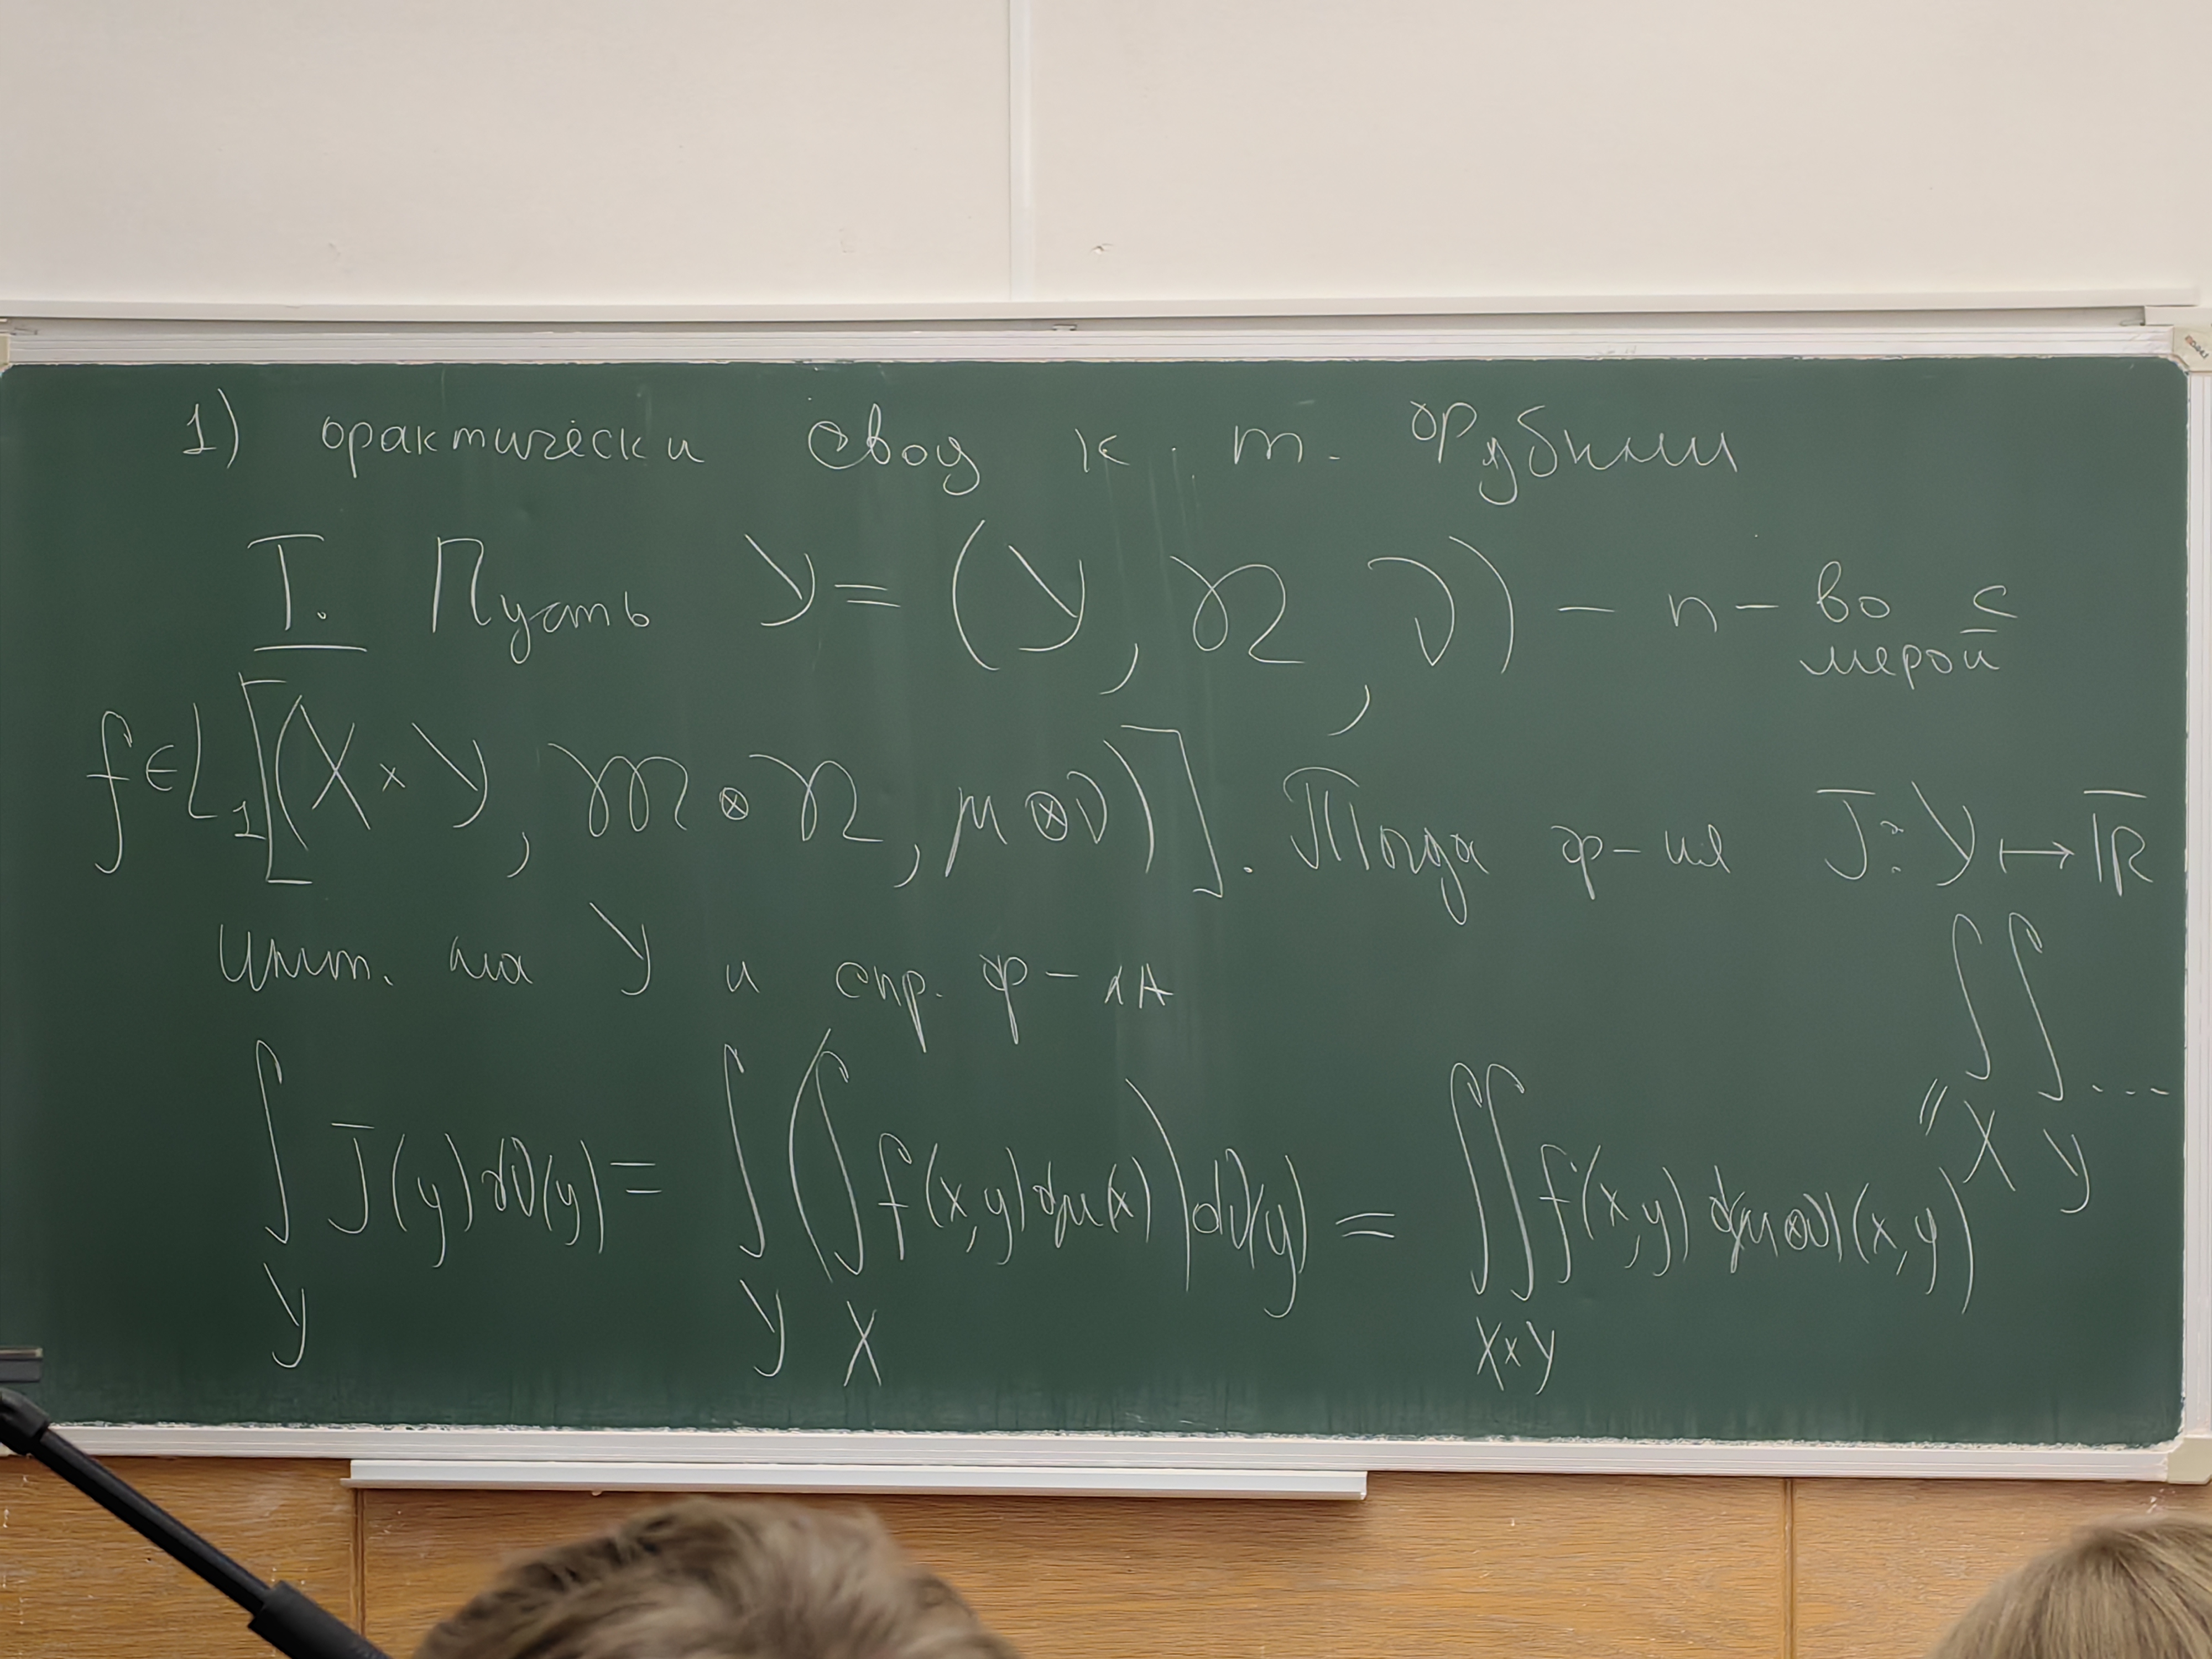 1) фактически свод к т. Фубини
Т. Пусть Y = (Y, 𝔑, ν) – п-во с
мерой
f ∈ L₁[(X × Y, 𝔐 ⊗ 𝔑, μ ⊗ ν)]. Тогда ф-ия J: Y ↦ ℝ̅
инт. на Y и спр. ф-ла
∫_Y J(y)dν(y) = ∫_Y (∫_X f(x,y)dμ(x))dν(y) = ∬_{X×Y} f(x,y) dμ⊗ν(x,y)
= ∫_X ∫_Y ...